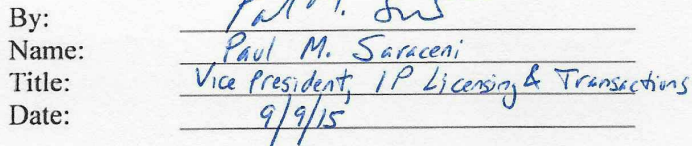 By:
Name: Paul M. Saraceni
Title: Vice President, IP Licensing & Transactions
Date: 9/9/15